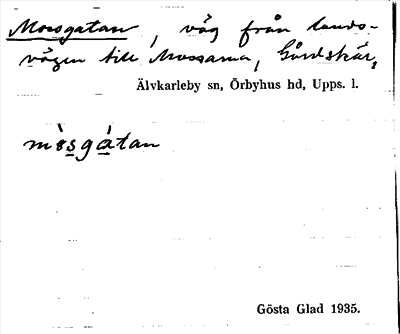 Mossgatan, väg från lands-
vägen till Mossarna, Gårdskär,
Älvkarleby sn, Örbyhus hd, Upps. l.
mòsgátan
Gösta Glad 1935.